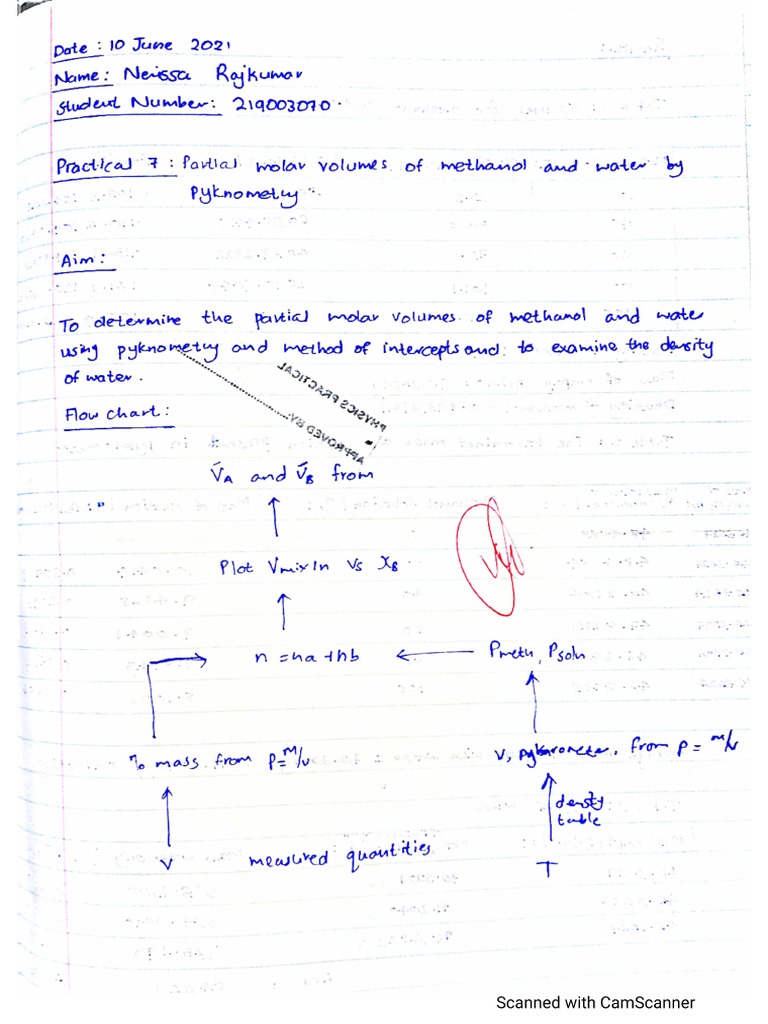 Date : 10 June 2021
Name : Nerissa Rajkumar
Student Number : 219003070.
Practical 7 : Partial molar volumes of methanol and water by
Pyknometry
Aim :
To determine the partial molar volumes of methanol and water
using pyknometry and method of intercepts and to examine the density
of water.
PHYSICS PRACTICAL
APPROVED BY:
Flow chart :
V̄A and V̄B from
Plot Vmix/n vs XB
n = na + nb
ρmeth, ρsoln
% mass from ρ= m/v
V, pyknometer, from ρ = m/v
density
table
V
measured quantities
T
Scanned with CamScanner